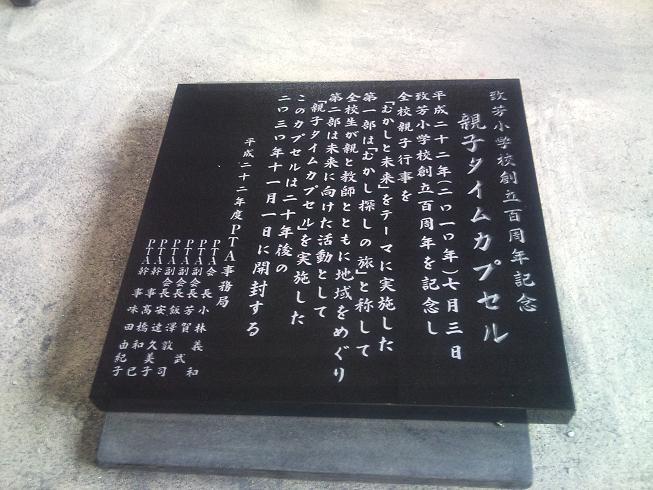 致芳小学校創立百周年記念
親子タイムカプセル
平成二十二年(二〇一〇年)七月三日
致芳小学校創立百周年を記念し
全校親子行事を
「むかしと未来」をテーマに実施した
第一部は「むかし探しの旅」と称して
全校生が親と教師とともに地域をめぐり
第二部は未来に向けた活動として
「親子タイムカプセル」を実施した
このカプセルは二十年後の
二〇三〇年十一月一日に開封する
平成二十二年度PTA事務局
PTA会長 小林義和
PTA副会長 芳賀武
PTA副会長 飯澤武
PTA副会長 安達敦司
PTA幹事 髙橋久美子
PTA幹事 味田和巳
由紀子